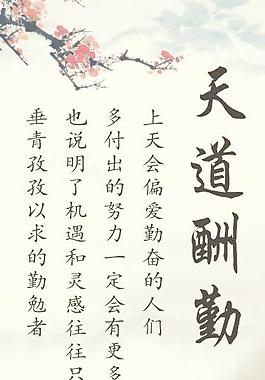 天道酬勤
上天会偏爱勤奋的人们
多付出的努力一定会有更多
也说明了机遇和灵感往往只
垂青孜孜以求的勤勉者